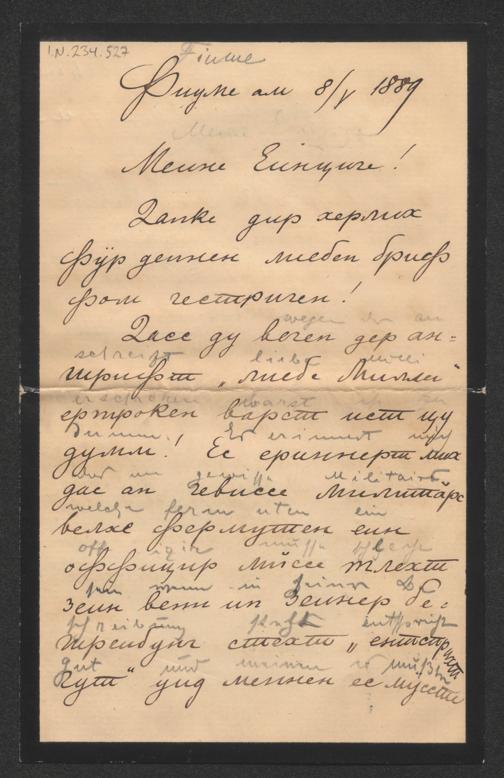 I.N. 234.527
Fiume
Фиуме ам 8/V 1889
Меине Еинциге!
Данке дир херлих
фӱр деинен лиебен бриеф
фом гестриген!
wegen der an
Дасс ду веген дер ан=
schreift liebe Milli
шрифт „лиебе Милли"
erschrocken warst ist zu
ершрокен варст ист цу
dumm. Es erinnert mich
думм! Ес ериннерт мих
das an gewisse Militairs
дас ан гевиссе Милитӓрс
welche fermuten ein
велхе фермутен еин
offizir müsse schlecht
оффицир мӱссе шлехт
sein wenn in seiner Be
зеин венн ин зеинер бе=
schreibung steht entspricht
шреибунг стехт „ентсприхт
gut und meinen es müsste
гут" унд меинен ес мӱссте